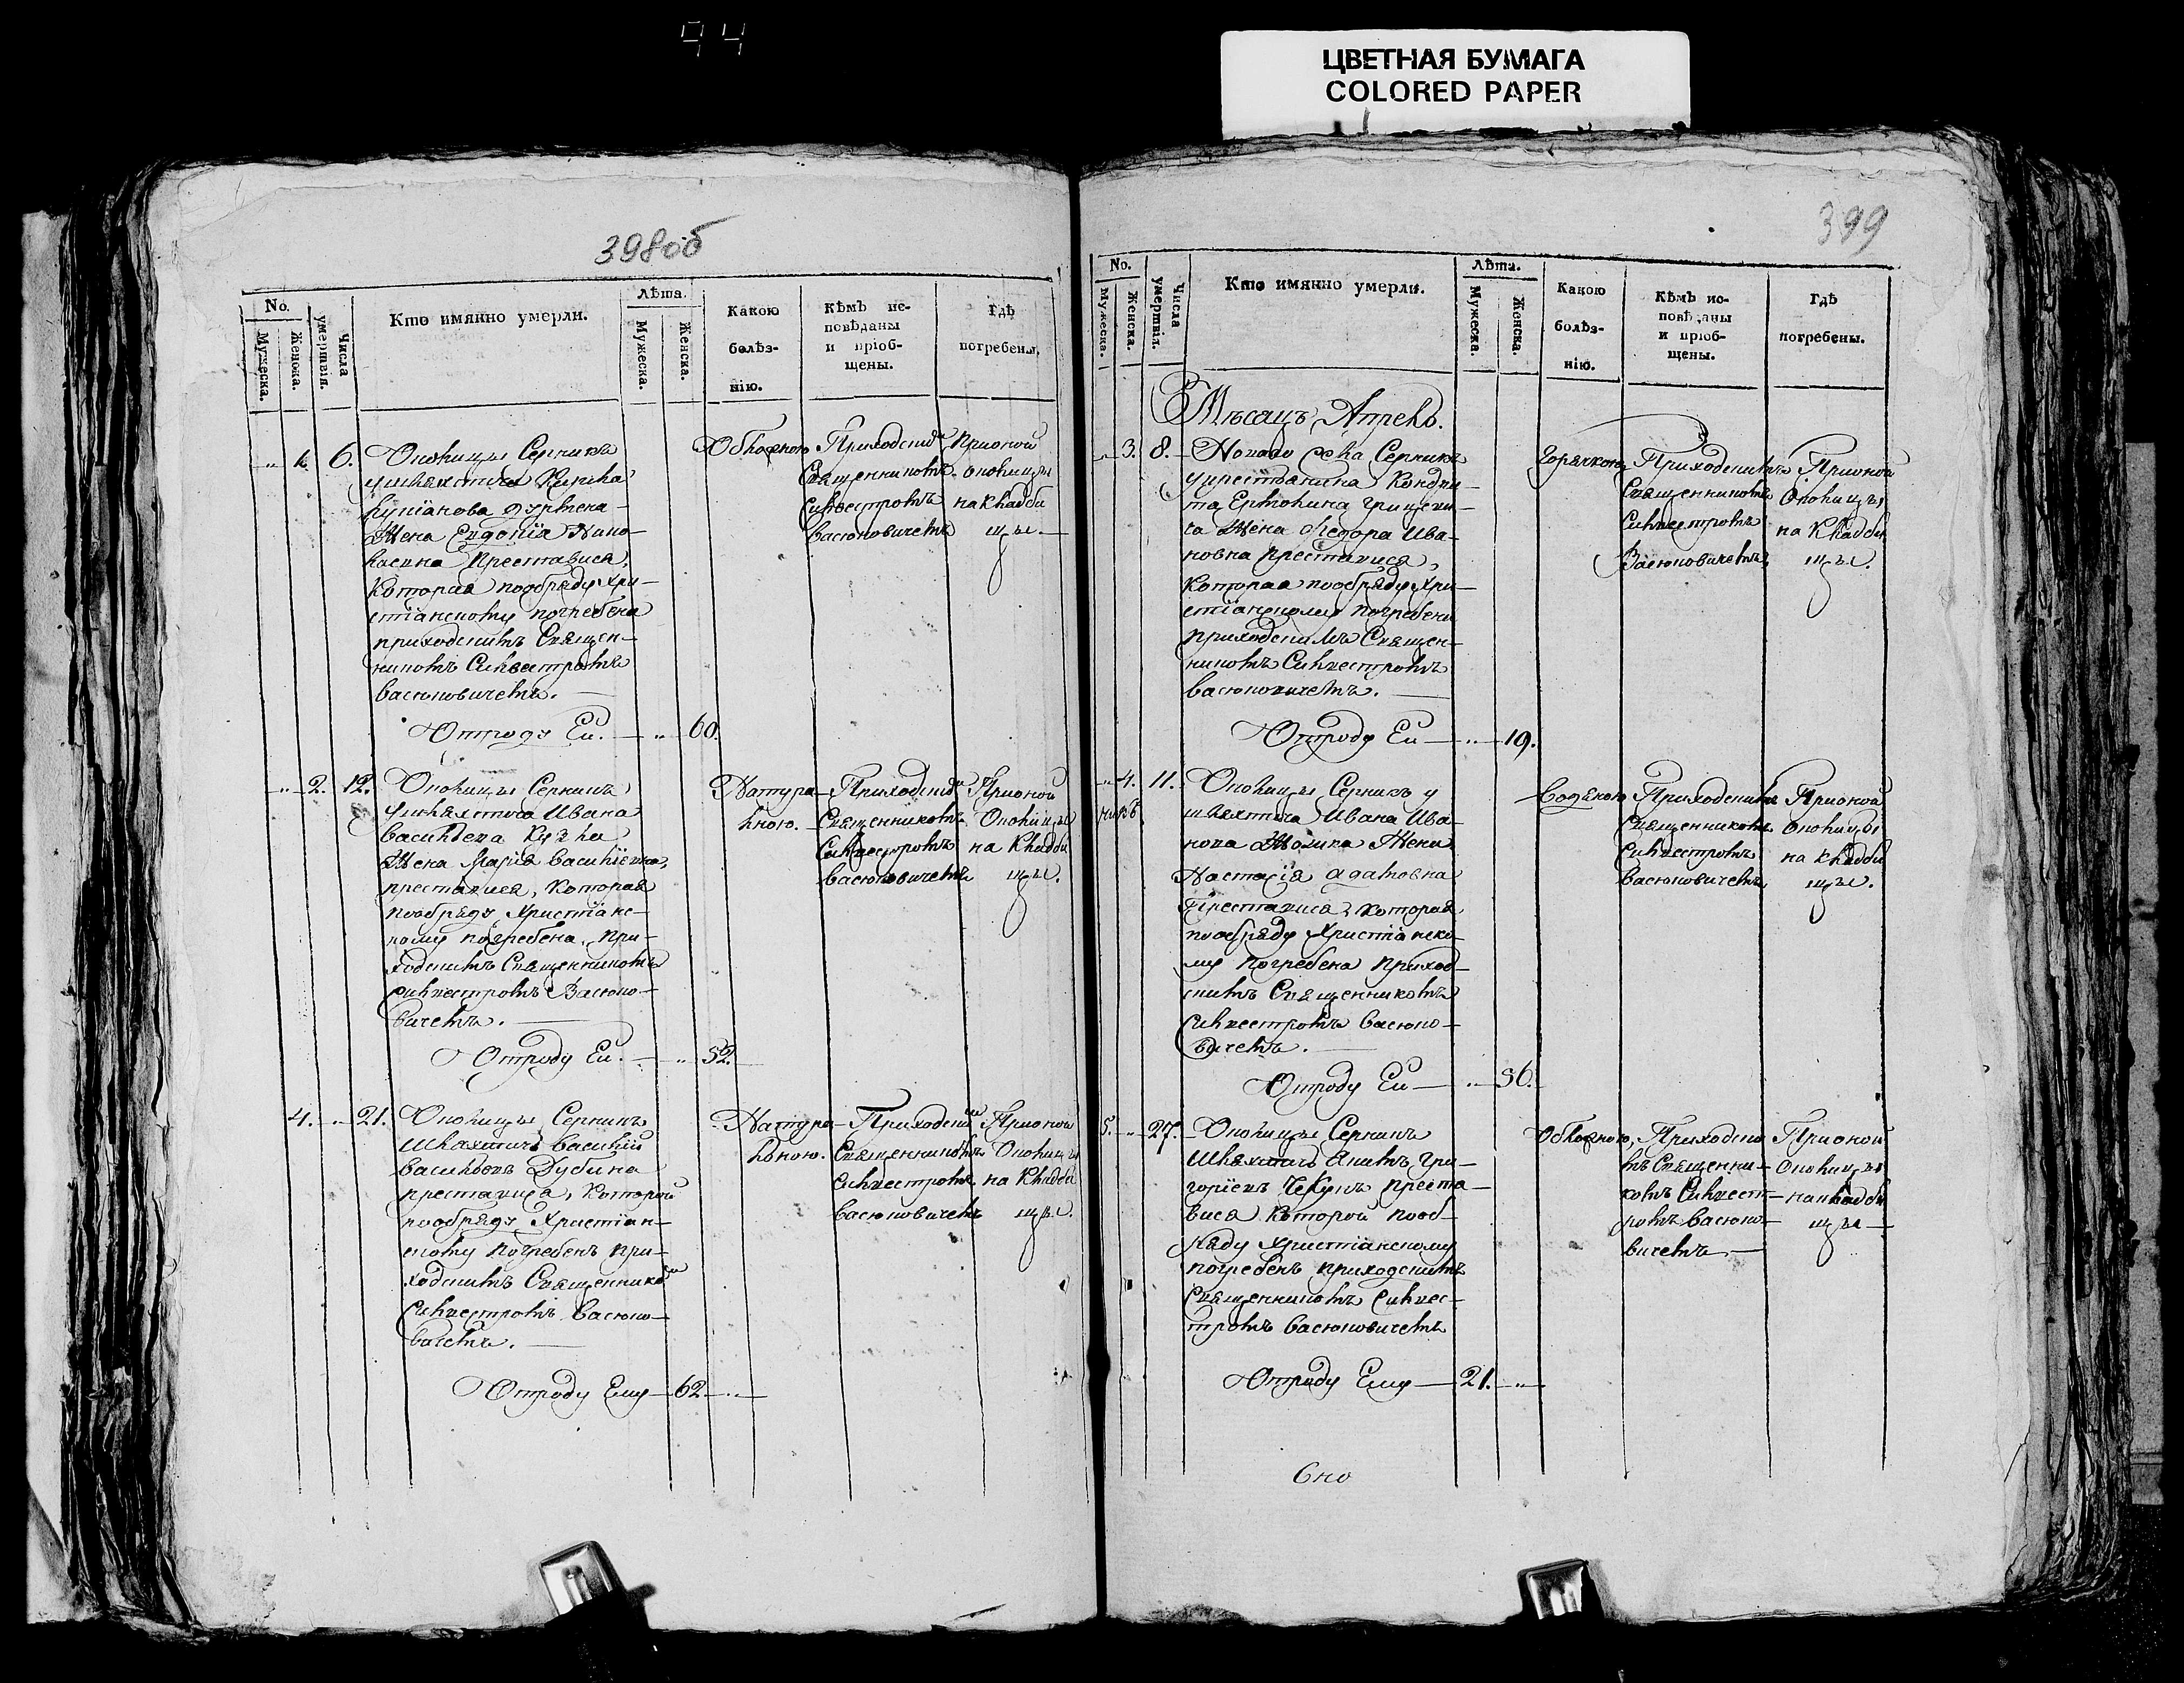 94
ЦВЕТНАЯ БУМАГА
COLORED PAPER
398об
No.
Мужеска.
Женска.
Числа умертвія.
Кто имянно умерли.
Лѣта.
Мужеска.
Женска.
Какою болѣз-
нію.
Кѣмъ ис-
повѣданы
и пріоб-
щены.
Гдѣ
погребены.
6.
Околицы Серникъ
шляхтича
Жена Евдокія
преставися,
которая пообряду хри-
стіанскому погребена
приходскимъ Священ-
никомъ Сильвестромъ
Васюковичемъ.
Отроду Ей. — " — 60.
Приходскимъ
Священникомъ
Сильвестромъ
Васюковичемъ
Прионой
околицы
на кладби
щѣ.
" 2. 12.
Околицы Серникъ
шляхтича Ивана
Васильева
Жена Марія Васильевна,
преставися, которая
пообряду Христіанс-
кому погребена при-
ходскимъ Священникомъ
Сильвестромъ Васюко-
вичемъ.
Отроду Ей. — " 52.
Натура-
льною.
Приходскимъ
Священникомъ
Сильвестромъ
Васюковичемъ
Прионой
Околицы
на кладби
щѣ.
4. " 21.
Околицы Серникъ
Шляхтичъ Василій
Васильевъ Дубина
преставися, которой
пообряду Христіан-
скому погребенъ при-
ходскимъ Священникомъ
Сильвестромъ Васюко-
вичемъ.
Отроду Ему — 62. "
Натура-
льною.
Приходскимъ
Священникомъ
Сильвестромъ
Васюковичемъ
Прионой
Околицы
на кладби
щѣ.
399
No.
Мужеска.
Женска.
Числа умертвія.
Кто имянно умерли.
Лѣта.
Мужеска.
Женска.
Какою
болѣз-
нію.
Кѣмъ ис-
повѣданы
и пріоб-
щены.
Гдѣ
погребены.
Мѣсацъ Апрель.
" 3. 8.
Серникъ
Жена Ѳедора Ива-
новна преставися,
которая пообряду Хри-
стіанскому погребена
приходскимъ Священ-
никомъ Сильвестромъ
Васюковичемъ.
Отроду Ей — " — 19.
Горячкою
Приходскимъ
Священникомъ
Сильвестромъ
Васюковичемъ
Прионой
Околицы
на кладби
щѣ.
" 4. 11.
Околицы Серникъ у
шляхтича Ивана Ива-
нова Жена
Настасія Адамовна
Преставися, которая
пообряду Христіанско-
му погребена приход-
скимъ Священникомъ
Сильвестромъ Васюко-
вичемъ.
Отроду Ей — " — 36.
Водяною
Приходскимъ
Священникомъ
Сильвестромъ
Васюковичемъ
Прионой
околицы
на кладби
щѣ.
5. " 27.
Околицы Серникъ
Шляхтичъ Гри-
горіевъ преста-
вися которой пооб-
ряду Христіанскому
погребенъ приходскимъ
Священникомъ Сильвес-
тромъ Васюковичемъ
Отроду Ему — 21. "
Приходски
мъ Священни-
комъ Сильвест-
ромъ Васюко-
вичемъ
Прионой
околицы
на кладби
щѣ